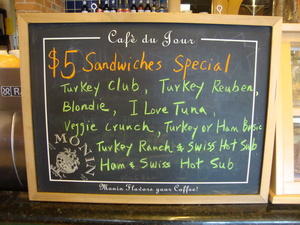 Café du Jour
$5 Sandwiches Special
Turkey Club, Turkey Reuben,
Blondie, I Love Tuna,
Veggie Crunch, Turkey or Ham Basic
Turkey Ranch & Swiss Hot Sub
Ham & Swiss Hot Sub
MONIN
Monin Flavors your Coffee!